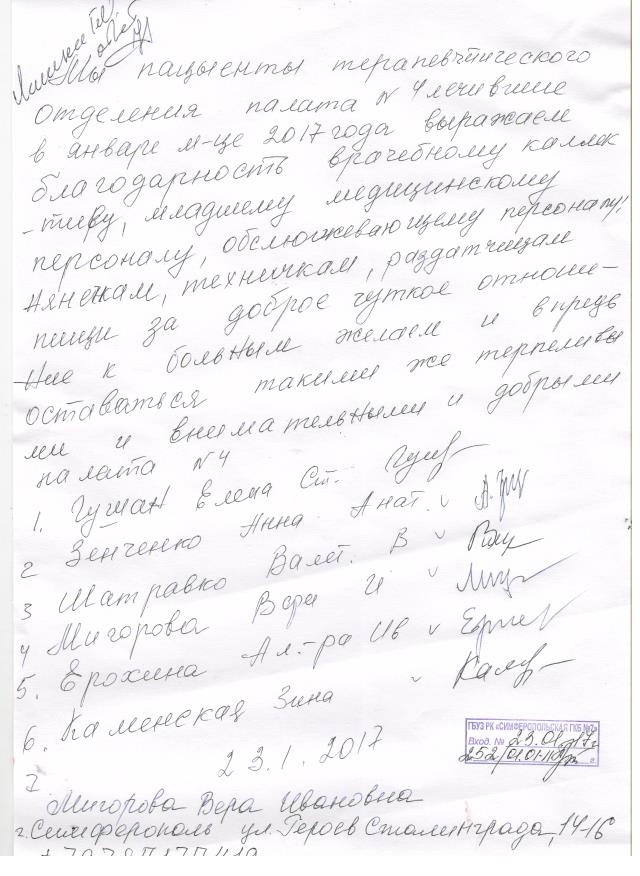 Мы пациенты терапевтического
отделения палата N 4 лечившие
в январе м-це 2017 года выражаем
благодарность врачебному каллек
-тиву, младшему медицинскому
персоналу, обслюживающему персоналу,
нянечкам, техничкам, раздатчицам
пищи за доброе чуткое отноше-
-ние к больным желаем и впредь
оставаться такими же терпеливы
ми и внимательными и добрыми
палата N 4
1. Гушан Елена Ст.
2 Зенченко Анна Анат. v
3 Шатравко Валет. В v
4 Мигорова Вера И v
5. Ерохина Ал-ра Ив v
6. Каменская Зина v
23.1.2017
ГБУЗ РК «СИМФЕРОПОЛЬСКАЯ ГКБ №7»
Вход. № 23.01.17г
252/01.01-
7
Мигорова Вера Ивановна
г. Симферополь ул. Героев Сталинграда, 14-16